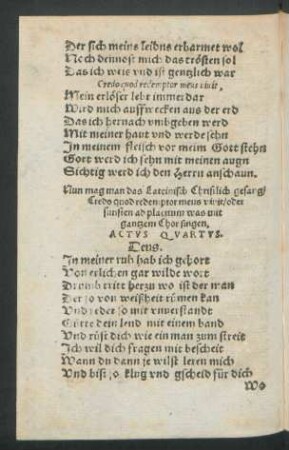 Der sich meins leidns erbarmet wol
Noch dennost mich das trösten sol
Das ich weis vnd ist gentzlich war
Credo quod redemptor meus vivit,
Mein erlöser lebt immerdar
Wird mich auffwecken aus der erd
Das ich hernach vmbgeben werd
Mit meiner haut vnd werde sehn
In meinem fleisch vor meim Gott stehn
Gott werd ich sehn mit meinen augn
Sichtig werd ich den Herrn anschaun.
Nun mag man das Lateinisch Christlich gesang
Credo quod redemptor meus vivit/oder
sunsten ad placitum was mit
gantzem Chor singen.
ACTVS QVARTVS.
Deus.
In meiner ruh hab ich gehort
Von etlichen gar wilde wort
Drumb tritt herzu wo ist der man
Der so von weißheit rümen kan
Vnd redet so mit vnverstandt
Gürte dein lend mit einem band
Vnd rüst dich wie ein man zum streit
Ich wil dich fragen mit bescheit
Wann du dann je wilst leren mich
Vnd bist so klug vnd gscheid für dich
Wo